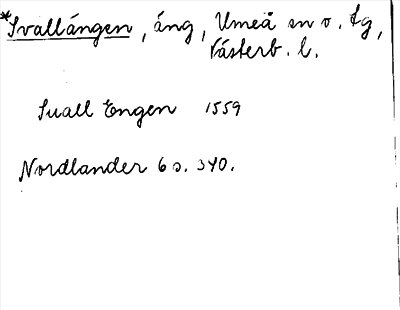 *Svallängen, äng, Umeå sn o. tg,
Västerb. l.
Suall Engen 1559
Nordlander 6 s. 340.